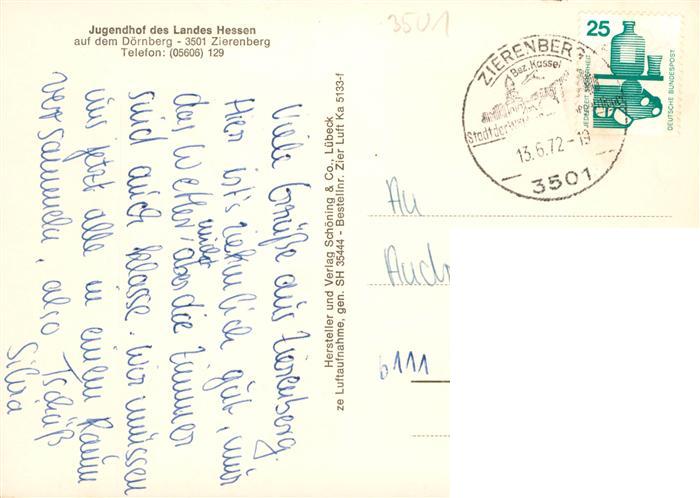 Jugendhof des Landes Hessen
auf dem Dörnberg - 3501 Zierenberg
Telefon: (05606) 129
3501
Viele Grüße aus Zierenberg.
Hier ist's ziemlich gut, nur
das Wetter nicht, aber die Zimmer
sind auch klasse. Wir müssen
uns jetzt alle in einem Raum
versammeln, also Tschüß
Silvia
Hersteller und Verlag Schöning & Co., Lübeck
ze Luftaufnahme, gen. SH 35444 - Bestellnr. Zier Luft Ka 5133-f
ZIERENBERG
Bez. Kassel
Stadt der
13.6.72-19
3501
25
JEDERZEIT SICHERHEIT
DEUTSCHE BUNDESPOST
An
6111